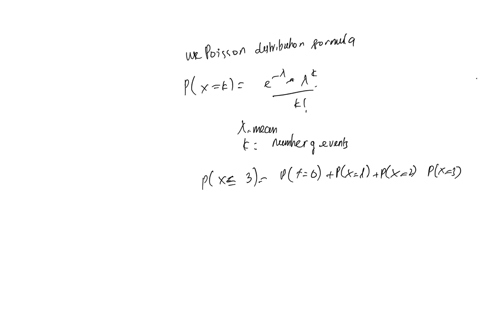 use Poisson distribution formula
P(x=k) = e^-λ * λ^k / k!
λ = mean
k = number of events
P(x≤ 3) = P(x=0) + P(x=1) + P(x=2) P(x=3)